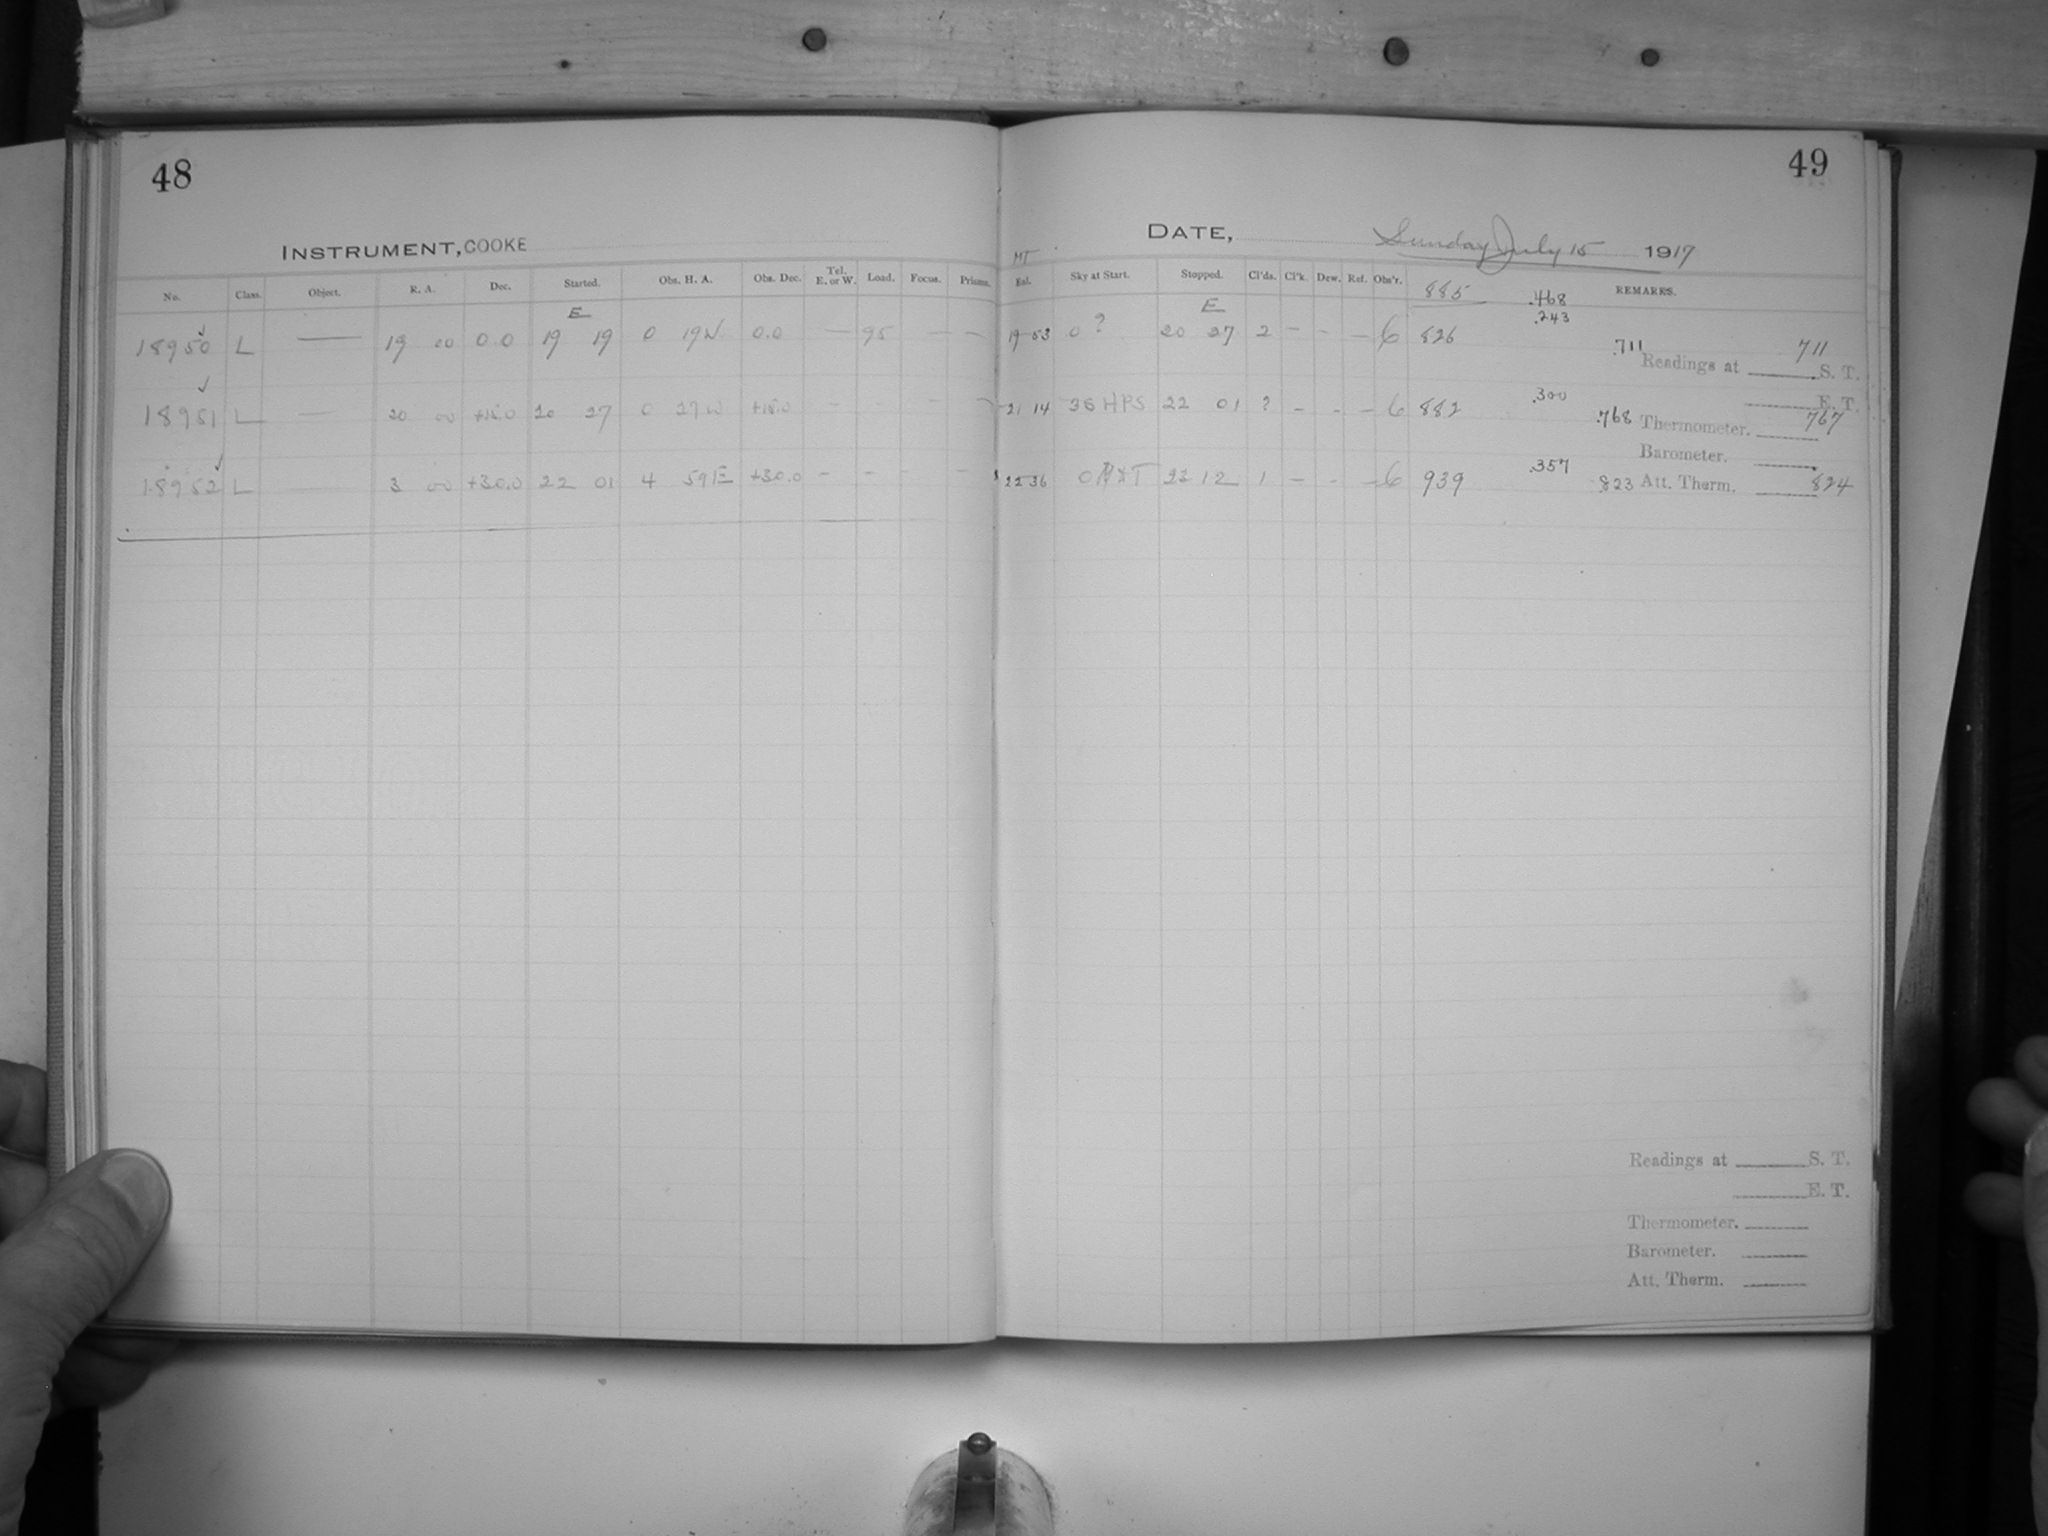 48
INSTRUMENT, COOKE
No. Class. Object. R. A. Dec. Started. Obs. H. A. Obs. Dec. Tel. E. or W. Load. Focus. Prisms.
E
18950 L — 19 00 0.0 19 19 0 19W 0.0 — 95 — —
18951 L — 20 00 +15.0 20 27 0 27W +15.0 - - - -
18952 L — 3 00 +30.0 22 01 4 59E +30.0 - - - -
49
DATE, Sunday July 15 1917
MT
Eal. Sky at Start. Stopped. Cl'ds. Cl'k. Dew. Ref. Obs'r. REMARKS.
885 .468
E
.243
19 53 0 ? 20 27 2 - - - 6 826 .711 711
Readings at S. T.
21 14 36 HPS 22 01 ? - - - 6 882 .300
E. T.
.768 Thermometer. 767
Barometer.
22 36 23 12 1 - - - 6 939 .357
823 Att. Therm. 824
Readings at S. T.
E. T.
Thermometer.
Barometer.
Att. Therm.